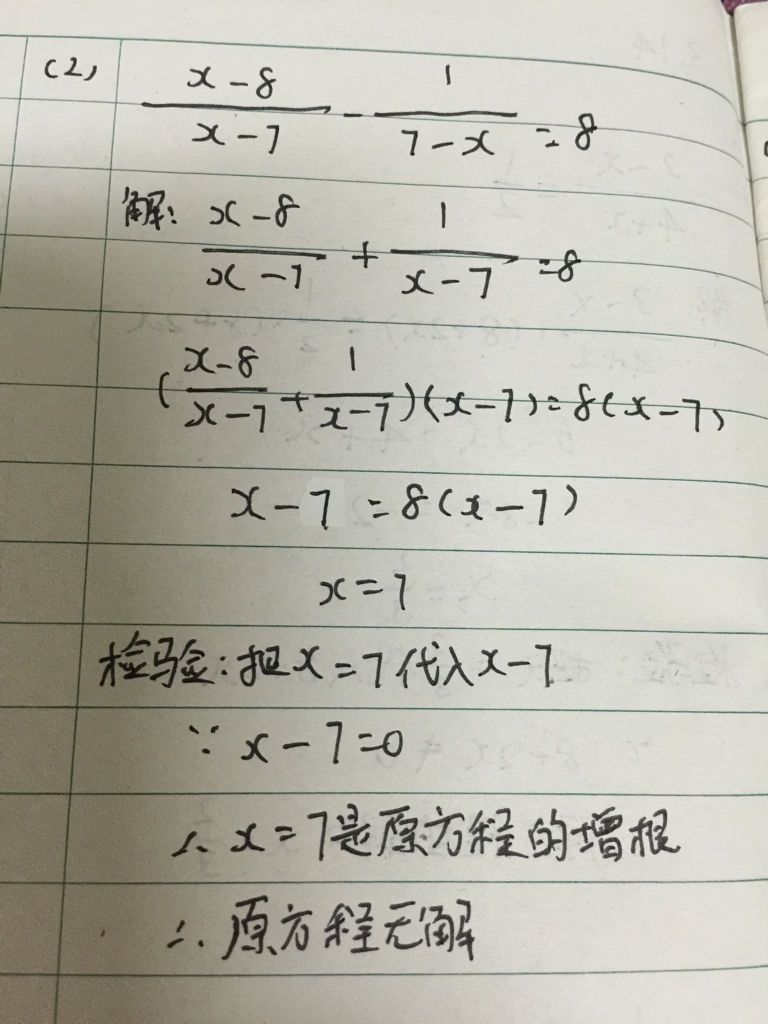 (2) \frac{x-8}{x-7} - \frac{1}{7-x} = 8
解: \frac{x-8}{x-7} + \frac{1}{x-7} = 8
(\frac{x-8}{x-7} + \frac{1}{x-7})(x-7) = 8(x-7)
x-7 = 8(x-7)
x=7
检验:把x=7代入x-7
∵ x-7=0
∴ x=7是原方程的增根
∴ 原方程无解